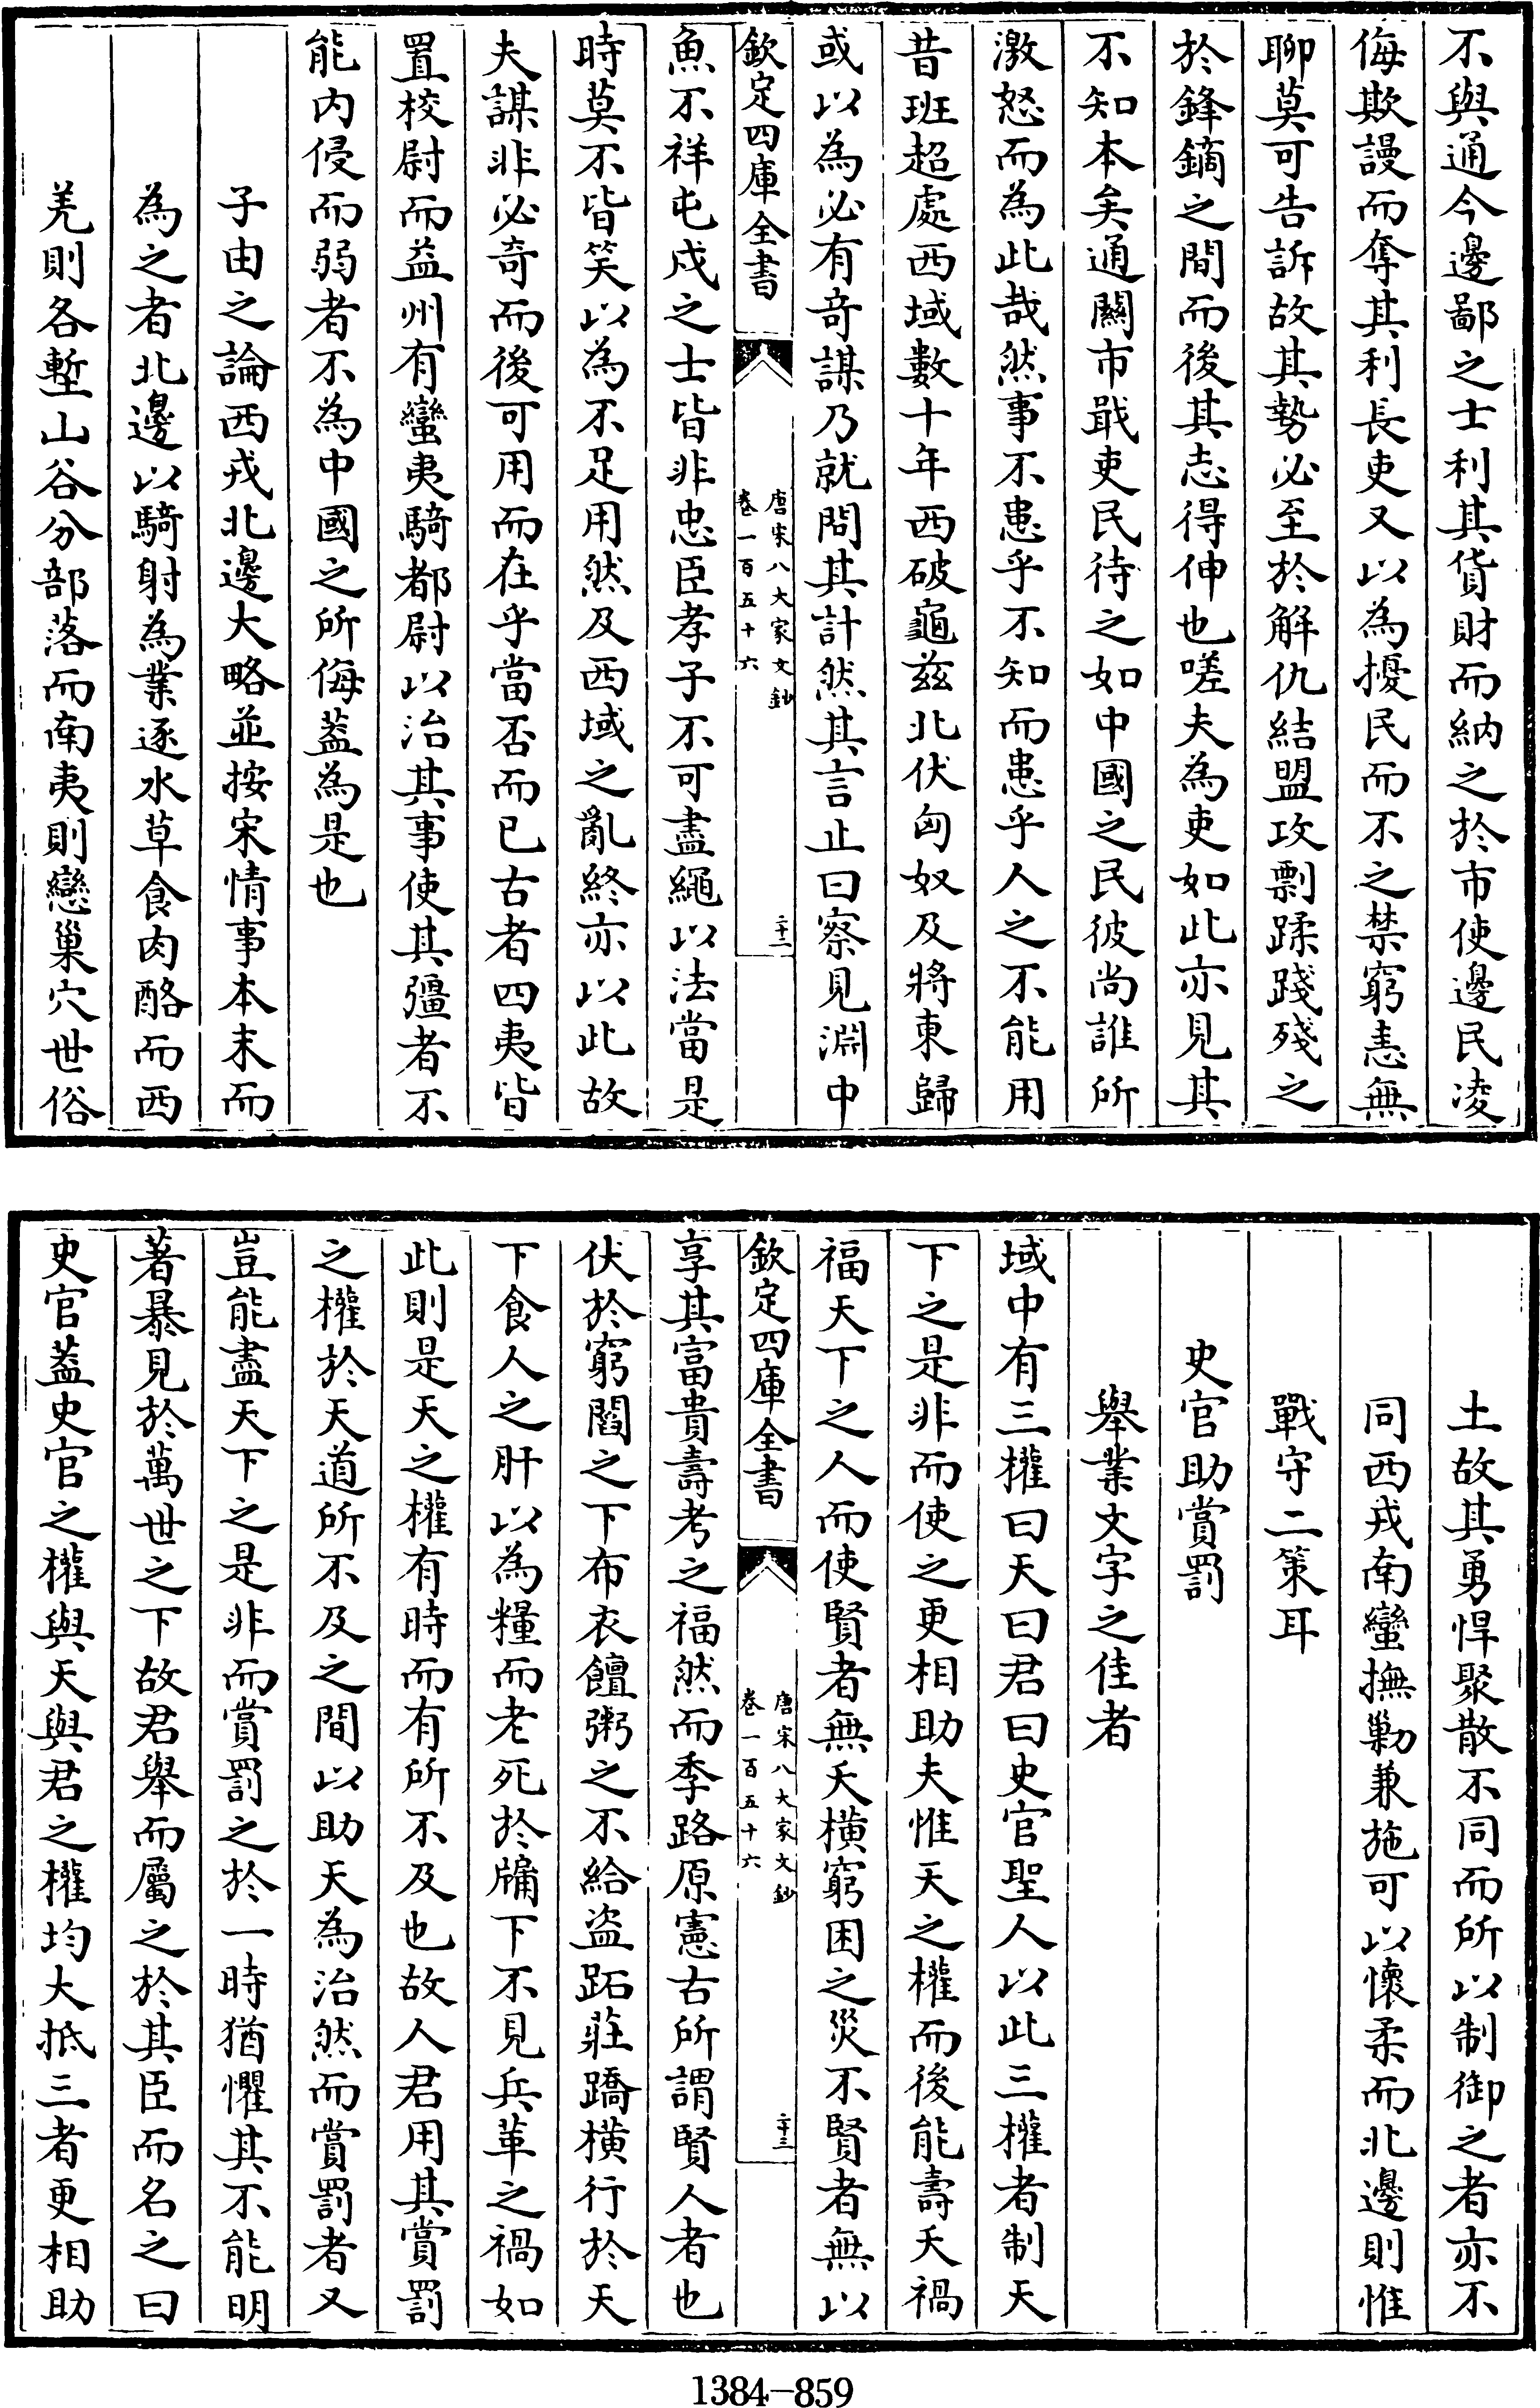 不與通今邊鄙之士利其貨財而納之於市使邊民凌
侮欺謾而奪其利長吏又以為擾民而不之禁窮恚無
聊莫可告訴故其勢必至於解仇結盟攻剽蹂踐殘之
於鋒鏑之間而後其志得伸也嗟夫為吏如此亦見其
不知本矣通關市戢吏民待之如中國之民彼尚誰所
激怒而為此哉然事不患乎不知而患乎人之不能用
昔班超處西域數十年西破龜兹北伏匈奴及將東歸
或以為必有奇謀乃就問其計然其言止曰察見淵中
欽定四庫全書
唐宋八大家文鈔
卷一百五十六
二十二
魚不祥屯戍之士皆非忠臣孝子不可盡繩以法當是
時莫不皆笑以為不足用然及西域之亂終亦以此故
夫謀非必奇而後可用而在乎當否而已古者四夷皆
置校尉而益州有蠻夷騎都尉以治其事使其彊者不
能内侵而弱者不為中國之所侮蓋為是也
子由之論西戎北邊大略並按宋情事本末而
為之者北邊以騎射為業逐水草食肉酪而西
羌則各塹山谷分部落而南夷則戀巢穴世俗
土故其勇悍聚散不同而所以制御之者亦不
同西戎南蠻撫勦兼施可以懷柔而北邊則惟
戰守二策耳
史官助賞罰
舉業文字之佳者
域中有三權曰天曰君曰史官聖人以此三權者制天
下之是非而使之更相助夫惟天之權而後能壽夭禍
福天下之人而使賢者無夭横窮困之災不賢者無以
欽定四庫全書
唐宋八大家文鈔
卷一百五十六
二十三
享其富貴壽考之福然而季路原憲古所謂賢人者也
伏於窮閻之下布衣饘粥之不給盜跖莊蹻横行於天
下食人之肝以為糧而老死於牖下不見兵革之禍如
此則是天之權有時而有所不及也故人君用其賞罰
之權於天道所不及之間以助天為治然而賞罰者又
豈能盡天下之是非而賞罰之於一時猶懼其不能明
著暴見於萬世之下故君舉而屬之於其臣而名之曰
史官蓋史官之權與天與君之權均大抵三者更相助
1384-859